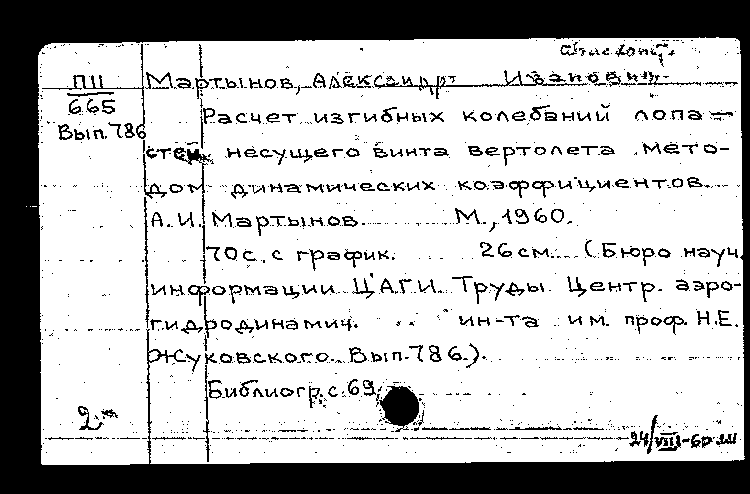 ПII
665
Вып. 786
Мартынов, Александр Иванович
Расчет изгибных колебаний лопа-
стей несущего винта вертолета мето-
дом динамических коэффициентов.
А. И. Мартынов. М., 1960.
70 с. с график. 26 см. (Бюро науч.
информации ЦАГИ. Труды Центр. аэро-
гидродинамич. ин-та им. проф. Н.Е.
Жуковского. Вып. 786.).
Библиогр. с. 69.
2
24/VIII-60